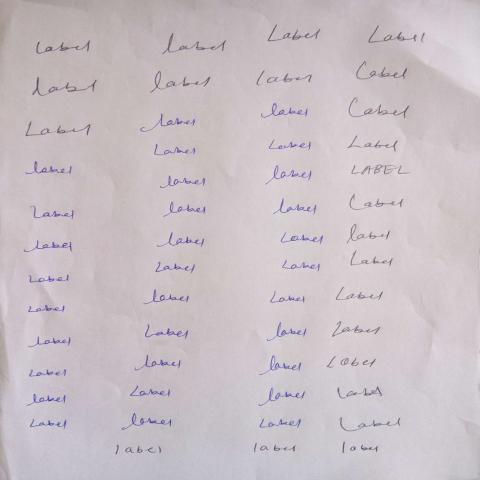 Label label Label Label
label label Label Label
Label label label Label
label Label Label Label
label label label LABEL
Label label label Label
label label Label label
Label Label Label Label
Label label Label Label
label Label label Label
Label label label Label
label Label label Label
Label label Label Label
label label label